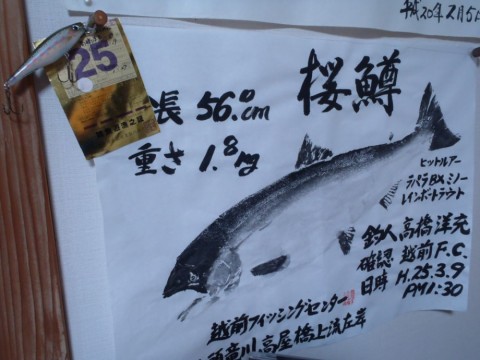 平成20年2月5日
25
桜鱒
長 56.0cm
重さ 1.8kg
ヒットルアー
ラパラBXミノー
レインボートラウト
釣人 高橋洋充
確認 越前F.C.
日時 H.25.3.9
PM1:30
越前フィッシングセンター
竜川高屋橋上流左岸